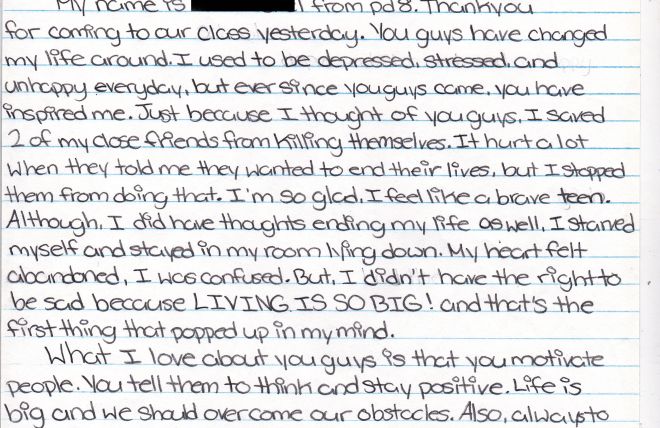 My name is l from pd 8. Thankyou
for coming to our class yesterday. You guys have changed
my life around. I used to be depressed, stressed, and
unhappy everyday, but ever since you guys came, you have
inspired me. Just because I thought of you guys, I saved
2 of my close friends from killing themselves. It hurt a lot
when they told me they wanted to end their lives, but I stopped
them from doing that. I'm so glad, I feel like a brave teen.
Although, I did have thoughts ending my life as well, I starved
myself and stayed in my room lying down. My heart felt
abandoned, I was confused. But, I didn't have the right to
be sad because LIVING IS SO BIG! and that's the
first thing that popped up in my mind.
What I love about you guys is that you motivate
people. You tell them to think and stay positive. Life is
big and we should overcome our obstacles. Also, always to